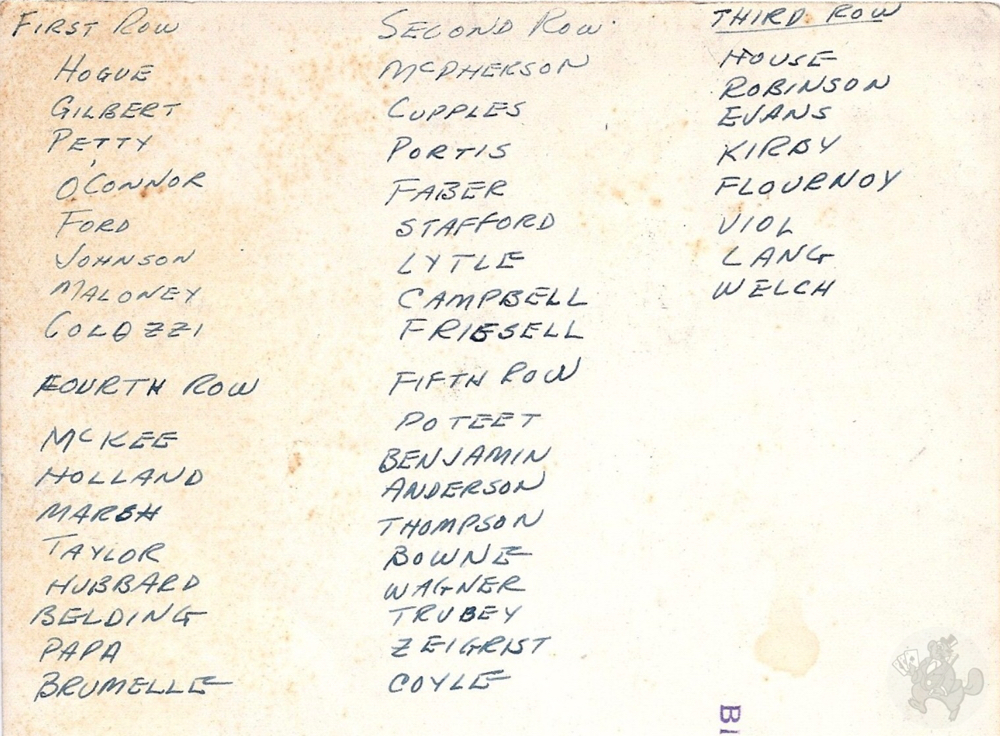 FIRST ROW
HOGUE
GILBERT
PETTY
O'CONNOR
FORD
JOHNSON
MALONEY
COLOZZI
SECOND ROW
MCPHERSON
CUPPLES
PORTIS
FABER
STAFFORD
LYTLE
CAMPBELL
FRIESELL
THIRD ROW
HOUSE
ROBINSON
EVANS
KIRBY
FLOURNOY
VIOL
LANG
WELCH
FOURTH ROW
MCKEE
HOLLAND
MARSH
TAYLOR
HUBBARD
BELDING
PAPA
BRUMELLE
FIFTH ROW
POTEET
BENJAMIN
ANDERSON
THOMPSON
BOWNE
WAGNER
TRUBEY
ZEIGRIST
COYLE